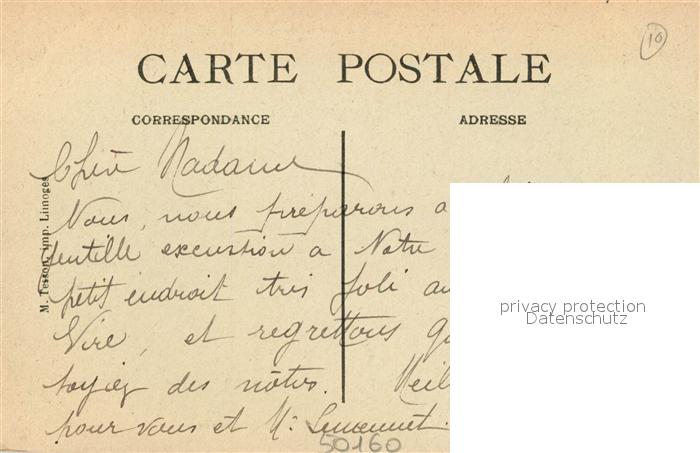 10
CARTE POSTALE
CORRESPONDANCE
ADRESSE
M. Tesson, imp. Limoges
Chère Madame
Nous, nous préparons a
gentille excurstion a Notre
petit endroit très joli au
Vire, et regrettons
soyiez des nôtres. Meil
pour vous et Mr
50160
privacy protection
Datenschutz